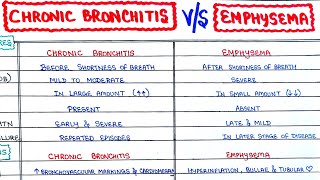 CHRONIC BRONCHITIS V/S EMPHYSEMA
RES
CHRONIC BRONCHITIS EMPHYSEMA
BEFORE SHORTNESS OF BREATH AFTER SHORTNESS OF BREATH
OB) MILD TO MODERATE SEVERE
IN LARGE AMOUNT (↑↑) IN SMALL AMOUNT (↓↓)
PRESENT ABSENT
HTN EARLY & SEVERE LATE & MILD
ILURE REPEATED EPISODES IN LATER STAGE OF DISEASE
NS CHRONIC BRONCHITIS EMPHYSEMA
↑ BRONCHOVASCULAR MARKINGS & CARDIOMEGALY HYPERINFLATION, BULLAE & TUBULAR ♡